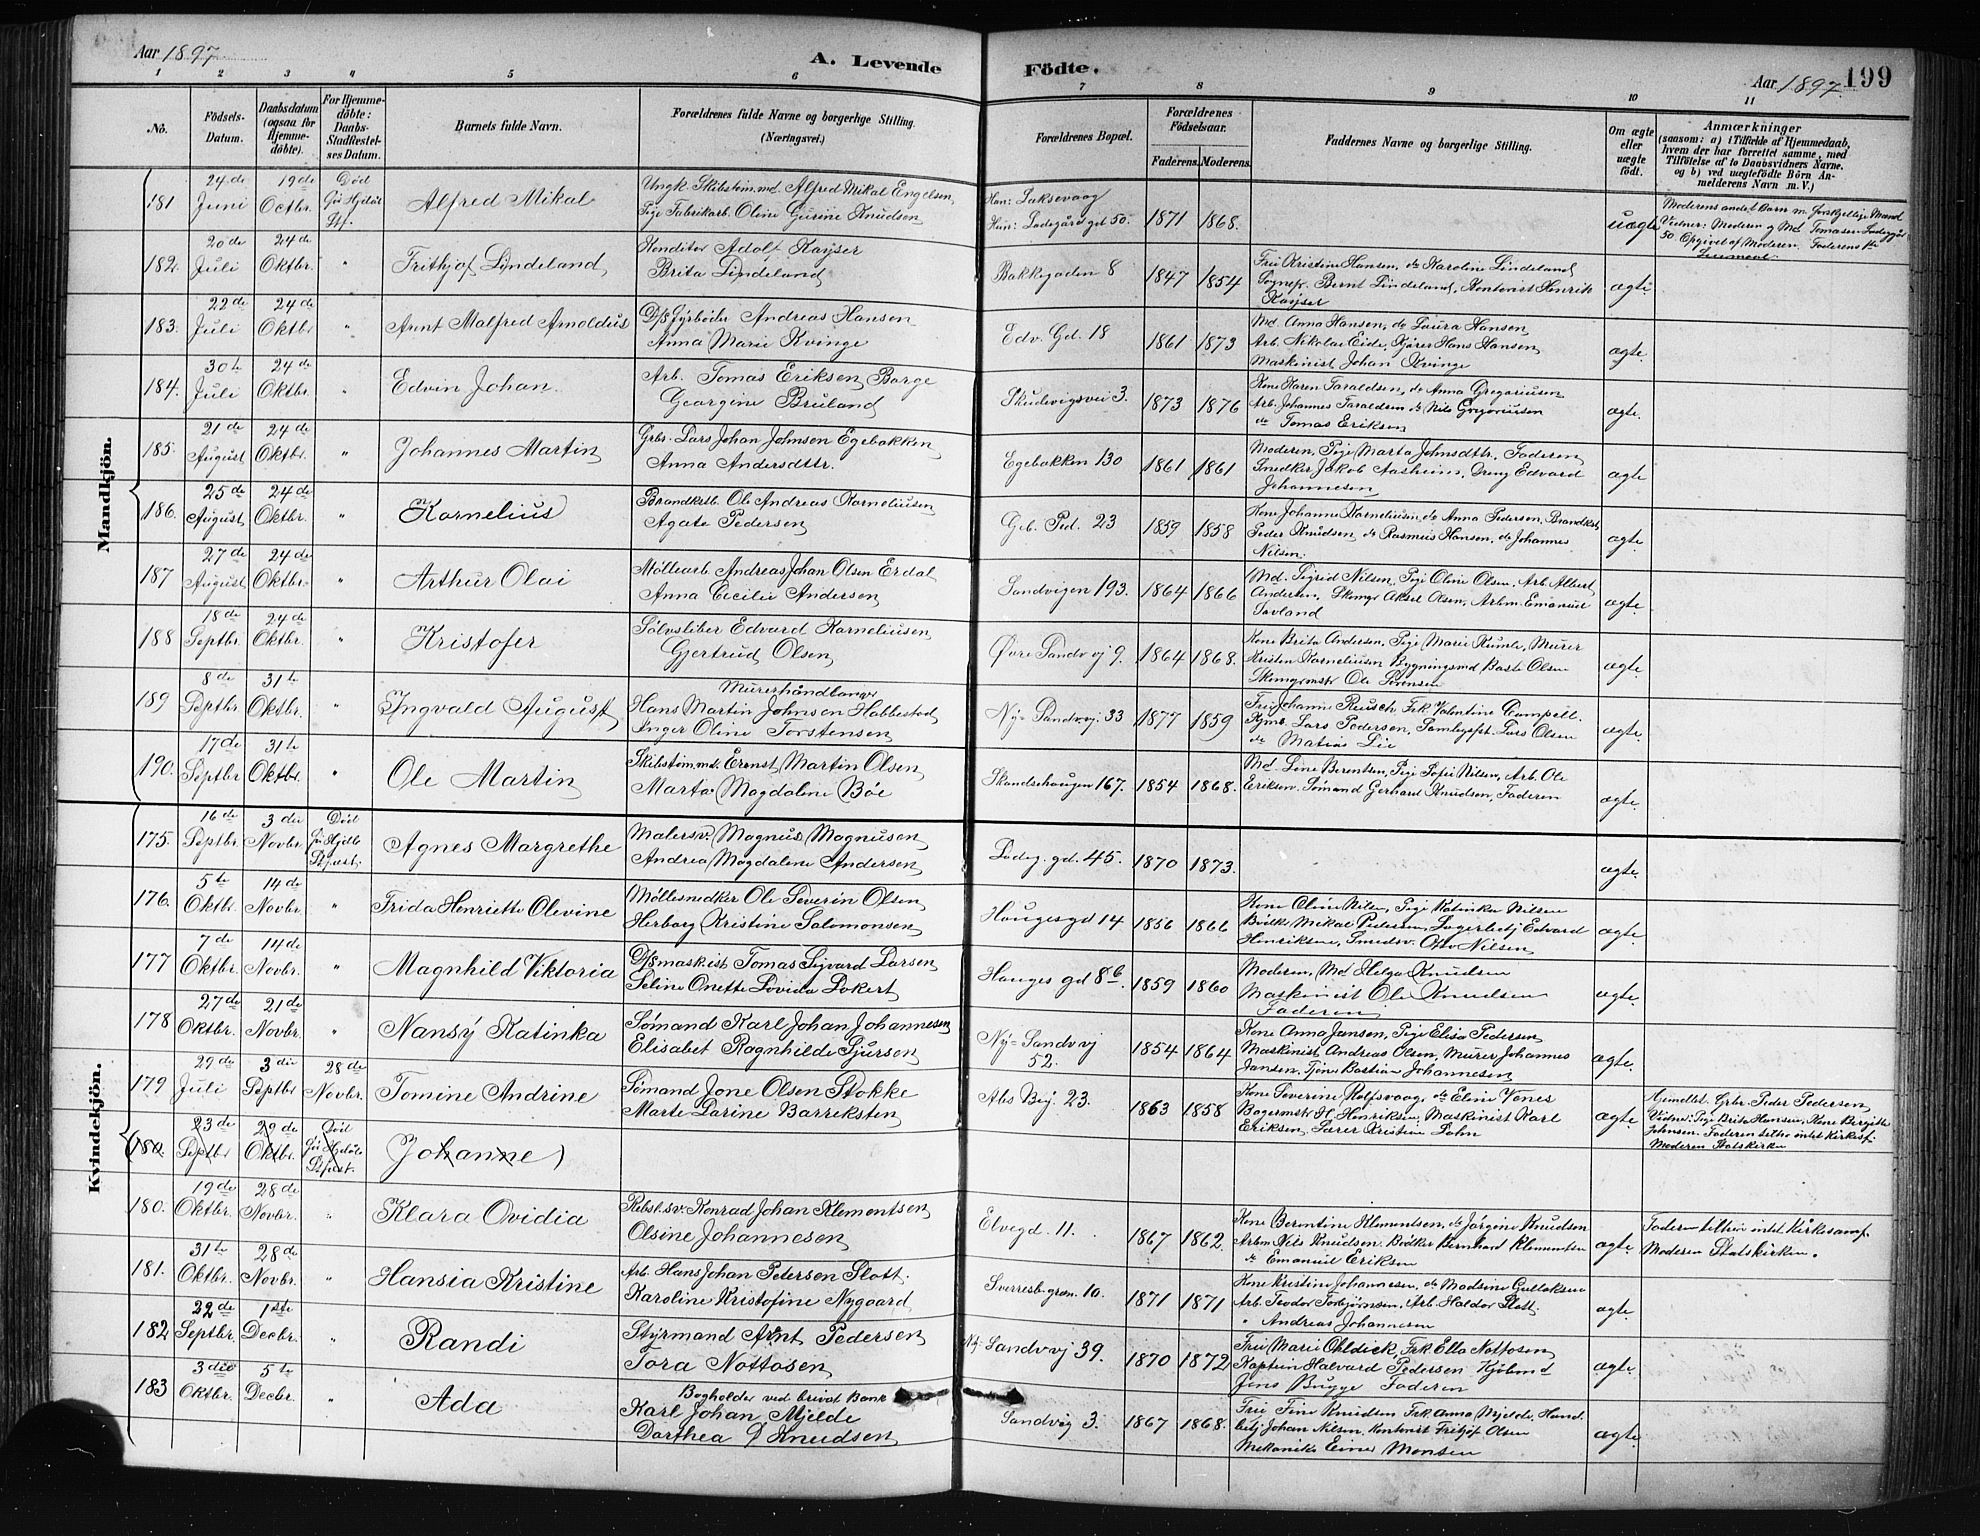 Aar 1897
A. Levende Födte.
Aar 1897. 199
1 2 3 4 5 6 7 8 9 10 11
No.
Födsels-Datum.
Daabsdatum (ogsaa for Hjemmedöbte).
For Hjemmedöbte: Daabs-Stadfæstelses Datum.
Barnets fulde Navn.
Forældrenes fulde Navne og borgerlige Stilling. (Næringsvei.)
Forældrenes Bopæl.
Forældrenes Födselsaar.
Faderens. Moderens.
Faddernes Navne og borgerlige Stilling.
Om ægte eller uægte födt.
Anmærkninger
(saasom: a) i Tilfælde af Hjemmedaab, hvem der har forrettet samme, med Tilföielse af to Daabsvidners Navne. og b) ved uægtefödte Börn Anmelderens Navn m. V.)
Mandkjön.
181 24de Juni 19de Octbr. Död Alfred Mikal
Ungk. Skibstøm.md. Alfred Mikal Engelsen
Pige Fabrikarb. Oline Gurine Knudsen
Han: Laksevaag
Hun: Ladegårdsgd 50. 1871 1868. uægte
Moderens andet Barn m. forskjellige Mænd
Vidner: Moderen og Md Tomasen
50. Opgivet af Moderen. Faderens
182. 20de Juli 24de Oktbr. " Frithjof Lindeland
Konditor Adolf Kayser
Brita Lindeland
Bakkegaden 8 1847 1854
Frü Kristine Hansen, do Karoline Lindeland
Sognepr. Bernt Lindeland, Kontorist Henrik
Kayser
ægte
183. 22de Juli 24de Oktbr " Arnt Malfred Arnoldus
D/s fyrböder Andreas Hansen
Anna Marie Kvinge
Edv. Gd. 18 1861 1873
Md. Anna Hansen, do Laura Hansen
Arb. Nikolai Eide, Kjører Hans Hansen
Maskinist Johan Kvinge
ægte.
184. 30te Juli 24de Oktbr. " Edvin Johan.
Arb. Tomas Eriksen Borge
Georgine Bruland
Skudevigsvei 3. 1873 1876
Kone Karen Taraldsen, do Anna Gregoriusen
Arb. Johannes Taraldsen do Nils Gregoriusen
do Tomas Eriksen
ægte.
185. 21de August 24de Oktbr. " Johannes Martin
Grbr. Lars Johan Johnsen Egebakken
Anna Andersdttr.
Egebakken 130 1861 1861
Moderen, Pige Marta Johnsdtr. Faderen
Snedker Jakob Aasheim, Dreng Edvard
Johannesen
ægte
186. 25de August 24de Oktbr. " Kornelius
Brandkstb. Ole Andreas Korneliusen
Agate Pedersen
Gb. Ped. 23 1859 1858
Kone Johanne Korneliusen, do Anna Pedersen, Brandkst.
Peder Knudsen, do Rasmus Hansen, do Johannes
Nilsen.
ægte.
187 27de August 24de Oktbr. " Arthur Olai
Möllearb. Andreas Johan Olsen Erdal
Anna Cecilie Andersen
Sandvigen 193. 1864 1866
Md. Sigrid Nilsen, Pige Oline Olsen, Arb. Albert
Andersen, Skomgr Aksel Olsen, Arbm. Emanuel
Søvland
ægte.
188 18de Septbr. 24de Oktbr. " Kristofer
Sølvsliber Edvard Korneliusen
Gjertrud Olsen
Øvre Sandvj 9. 1864 1868.
Kone Brita Andersen, Pige Marie Kumle, Murer
Kristen Korneliusen Bygningsmd Baste Olsen
Skomgrmstr Ole Sørensen
ægte.
189 8de Septbr. 31te Oktbr. " Ingvald August
Murerhåndlanger
Hans Martin Johnsen Habbestad
Inger Oline Torstensen
Ny-Sandvj. 33 1877 1859
Frü Johanne Reusch, Frk Valentine Campell.
Kjmd. Lars Pedersen, Lars Olsen
do Matias Lie
ægte.
190. 17de Septbr 31te Oktbr. " Ole Martin
Skibstøm.md. Ernst Martin Olsen
Marta Magdalene Böe
Skandsehaugen 167. 1854 1868.
Md Line Berentsen, Pige Sofie Nilsen, Arb. Ole
Eriksen. Sømand Gerhard Knudsen, Faderen
ægte.
Kvindekjön.
175. 16de Septbr 3die Novbr. Död Agnes Margrethe
Malersv. Magnus Magnusen
Andrea Magdalene Andersen
Ladeg. gd. 45. 1870 1873. ægte.
176. 5te Oktbr. 14de Novbr. " Frida Henriette Olevine
Möllesnedker Ole Severin Olsen
Herborg Kristine Salomonsen
Haugesgd 14 1856 1866
Kone Oline Nilsen, Pige Katinka Nilsen
Bödk. Mikal Pedersen, Lagerbetj Edvard
Henriksen, Smedsv. Otto Nilsen
ægte.
177 7de Oktbr. 14de Novbr. " Magnhild Viktoria
D/smaskist Tomas Sigvard Larsen
Seline Onette Lovida Lokert
Hauges gd 8b. 1859 1860
Moderen, Md Helga Knudsen
Maskinist Ole Knudsen
Faderen
ægte.
178 27de Oktbr. 21de Novbr. " Nansy Katinka
Sømand Karl Johan Johannesen
Elisabet Ragnhilde Sjursen
Ny-Sandvj 52. 1854 1864
Kone Anna Jansen, Pige Elisa Pedersen
Maskinist Andreas Olsen, Murer Johannes
Jansen, Tjen Bastian Johannesen
ægte.
179 29de Juli 3die Septbr 28de Novbr. Tomine Andrine
Sømand Jone Olsen Stokke
Marte Larine Barreksten
Abs Bg 23. 1863 1858
Kone Severine Rolfsvaag, do Eline Venes
Bagermstr H. Henriksen, Maskinist Karl
Eriksen, Lærer Kristian Sahn
ægte.
Anmeldt. Grbr. Peder Pedersen,
Vidner: Pige Brita Hansen, Kone Bergitte
Johnsen. Faderen tilhø intet Kirkesf.
Moderen Statskirken
(180. 23de Septbr 29de Oktbr. Död Johanne)
180. 19de Oktbr. 28de Novbr. " Klara Ovidia
Rebsl.sv. Konrad Johan Klementsen
Olsine Johannesen
Elvegd. 11. 1867 1862.
Kone Berentine Klementsen, do Jörgine Knudsen
Arbm Nils Knudsen. Bödker Bernhard Klementsen
do Emanuel Eriksen
ægte.
Faderen tilhører intet Kirkesamf.
Moderen Statskirken.
181. 31te Oktbr. 28de Novbr. " Hansia Kristine
Arb. Hans Johan Petersen Slott.
Karoline Kristofine Nygaard
Sverresb.græn. 10. 1871 1871
Kone Kristine Johannesen, do Madsine Gullaksen
Arb. Teodor Torbjørnsen, Arb. Haldor Slott
" Andreas Johannesen
ægte.
182 22de Septbr. 1ste Decbr. " Randi
Styrmand Arnt Pedersen
Tora Nottosen
Nj. Sandvj 39. 1870 1872
Frü Marie Obldick, Frk. Ella Nottosen
Kaptein Halvard Pedersen Kjöbmd
Jens Bugge Faderen
ægte.
183 3die Oktbr. 5te Decbr. " Ada
Bogholder ved privat Bank
Karl Johan Mjelde
Dorthea D Knudsen
Sandvig 3. 1867 1868.
Frü Tine Knudsen Frk. Anna Mjelde, Hand.
betj Johan Nilsen, Kontorist Fritjof Olsen
Mekaniker Einer Monsen
ægte.